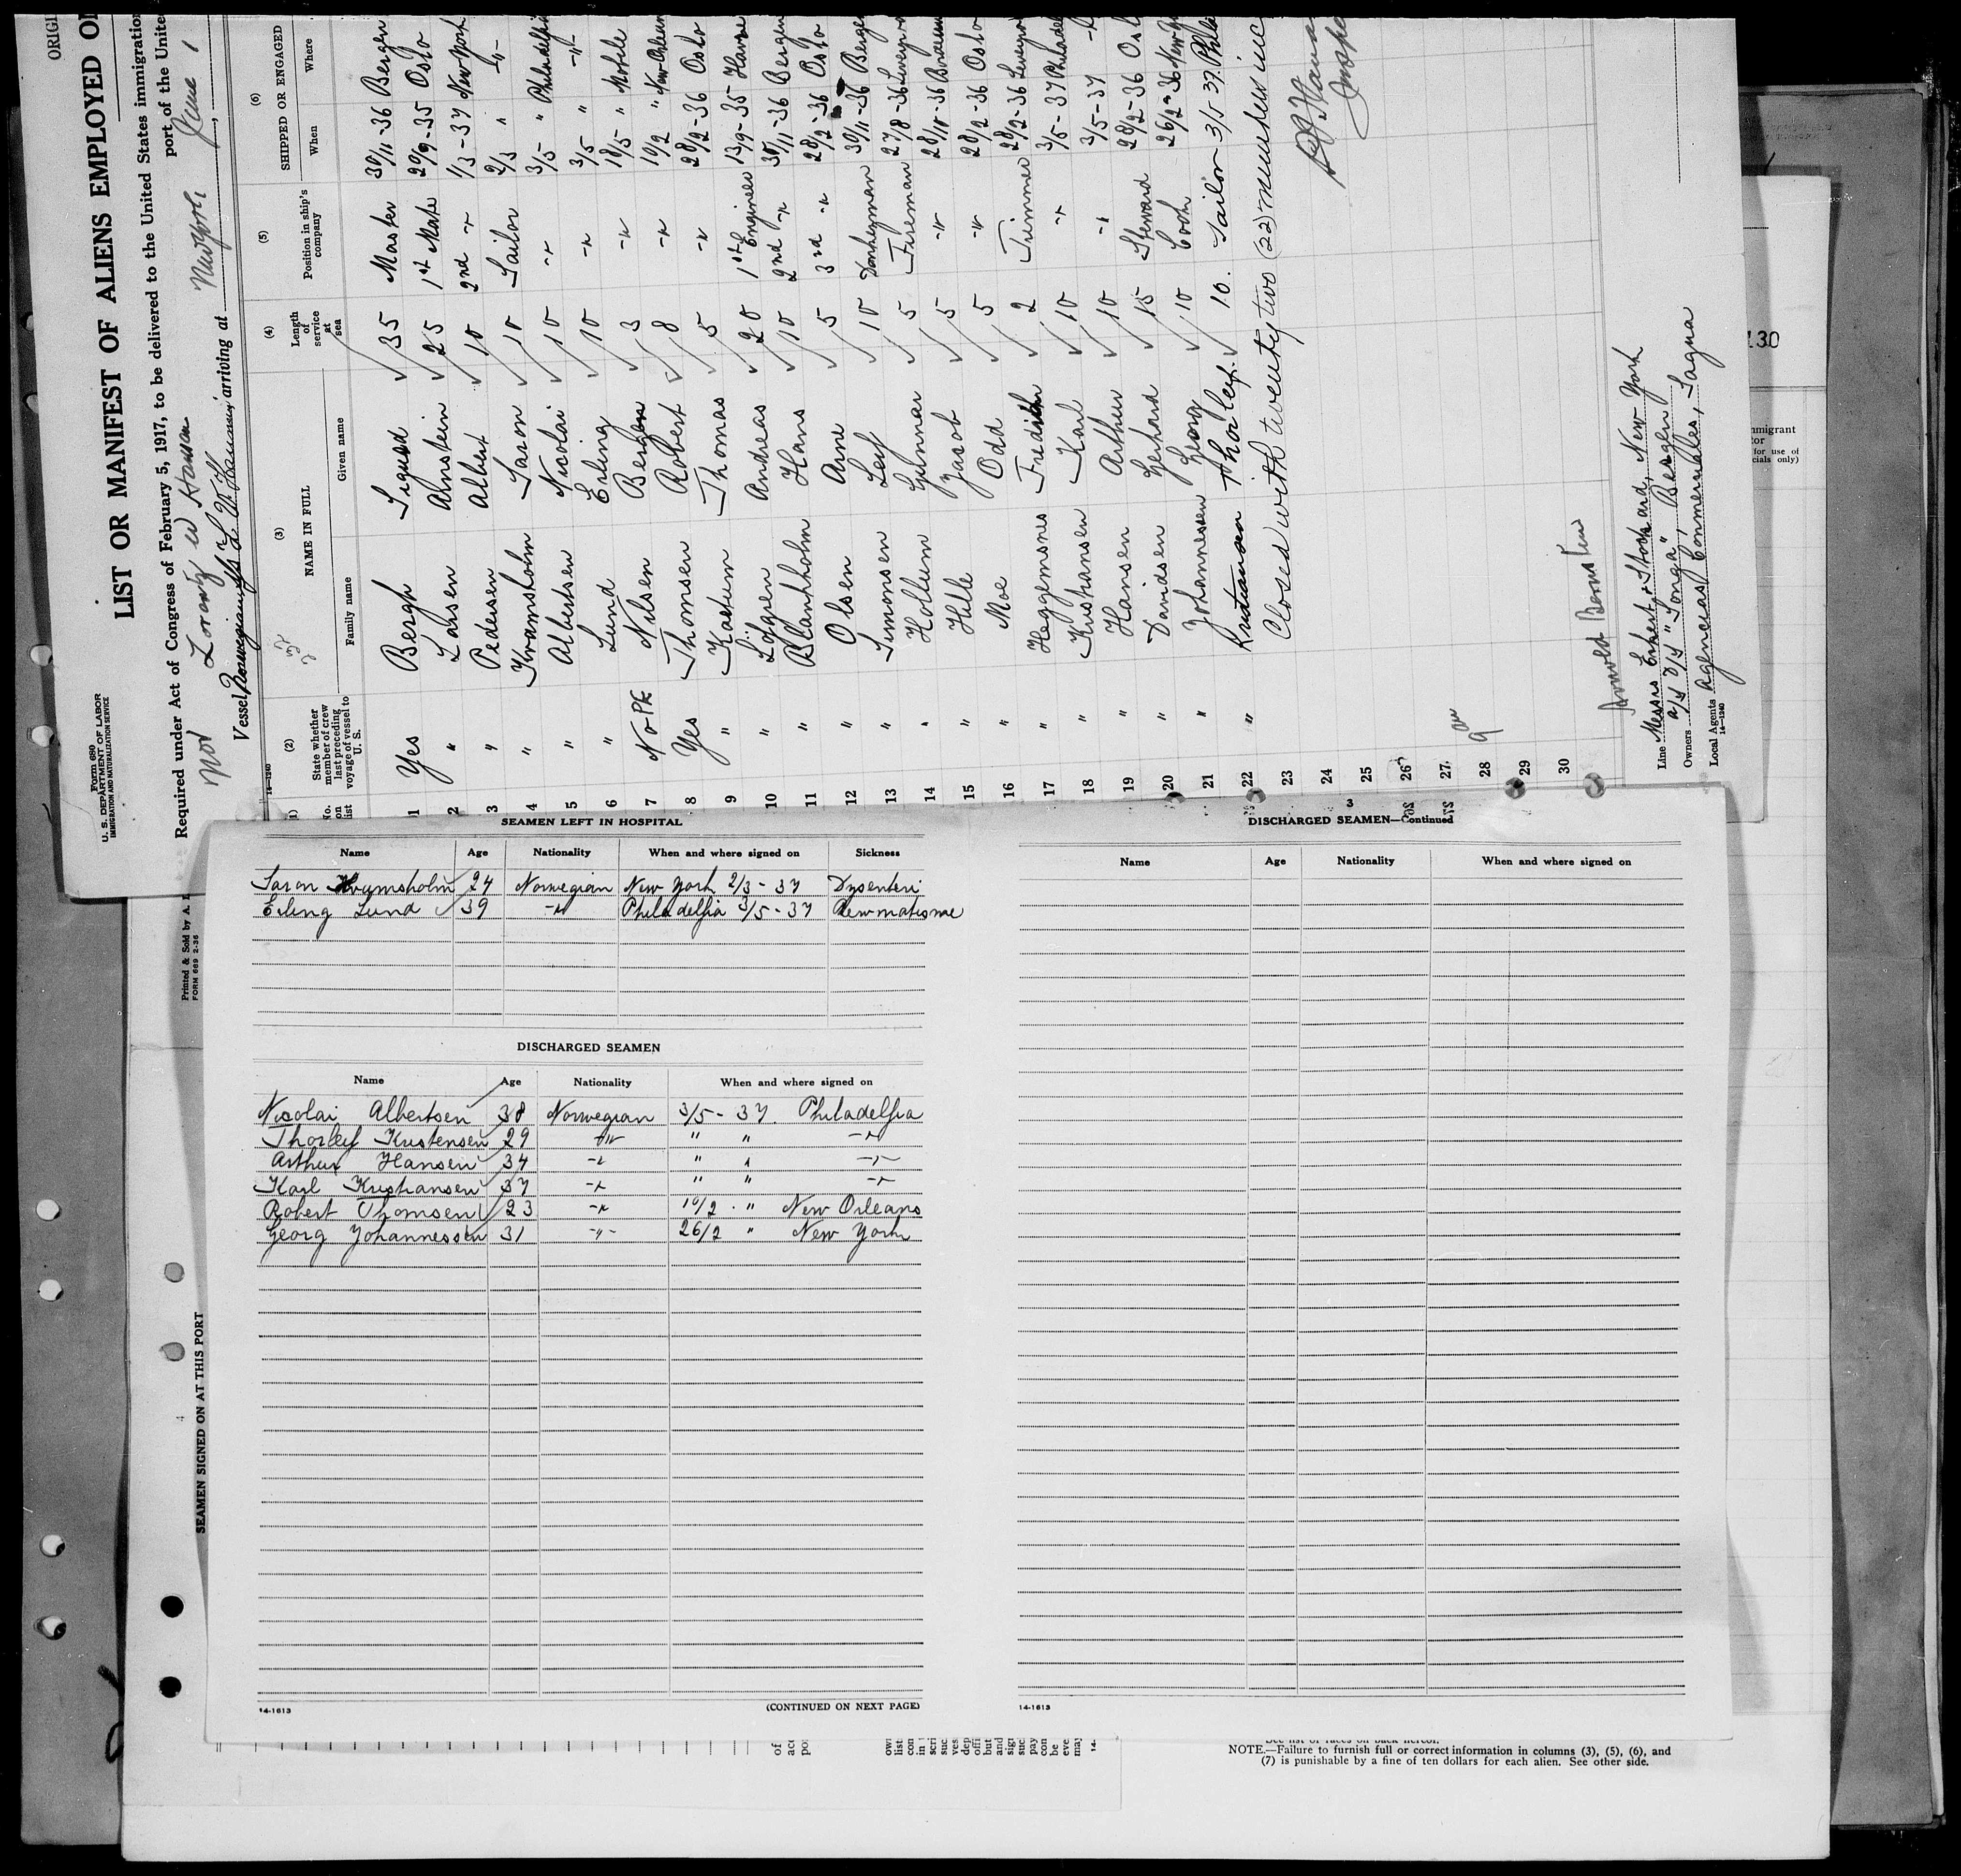 ORIGI
Form 680
U. S. DEPARTMENT OF LABOR
IMMIGRATION AND NATURALIZATION SERVICE
LIST OR MANIFEST OF ALIENS EMPLOYED O
Required under Act of Congress of February 5, 1917, to be delivered to the United States immigration
port of the Unite
Mor Lorentz W Hansen
Vessel arriving at New York, June 1
14-1240
(1) (2) (3) (4) (5) (6)
No. on list State whether member of crew last preceding voyage of vessel to U. S. NAME IN FULL Length of service at sea Position in ship's company SHIPPED OR ENGAGED
Family name Given name When Where
1 Yes Bergh Sigurd 35 Master 30/11-36 Bergen
2 " Larsen Arnstein 25 1st Mate 20/9-35 Oslo
3 " Pedersen Albert 10 2nd -"- 1/3-37 New York
4 " Kramsholm Saron 10 Sailor 2/3 " -"-
5 " Albertsen Nicolai 10 -"- 3/5 " Philadelfia
6 " Lund Erling 10 -"- 3/5 " -"-
7 No PE Nilsen Bergen 3 -"- 18/5 " Mobile
8 Yes Thomsen Robert 8 -"- 10/2 " New Orleans
9 " Kastum Thomas 5 -"- 28/2-36 Oslo
10 " Löfgren Andreas 20 1st Engineer 13/9-35 Havre
11 " Blankholm Hans 10 2nd -"- 30/11-36 Bergen
12 " Olsen Arne 5 3rd -"- 28/2-36 Oslo
13 " Simonsen Leif 10 Donkeyman 30/11-36 Bergen
14 " Hollum Gunnar 5 Fireman 27/8-36
15 " Hille Jacob 5 -"- 28/10-36
16 " Moe Odd 5 -"- 28/2-36 Oslo
17 " Heggemsnes 2 Trimmer 28/2-36
18 " Kristiansen Karl 10 -"- 3/5-37 Philadel
19 " Hansen Arthur 10 -"- 3/5-37 -"-
20 " Davidsen Gerhard 15 Steward 28/2-36 Osl
21 " Johannessen Georg 10 Cook 26/2-36 New Yo
22 " Thorleif. 10. Sailor 3/5 37. Phila
23 Closed with twenty two (22) members inc
24
25
26
27
28
29
30
Arnold Bernstein
Line Messrs , New York
Owners a/s D/S "Tonga", Bergen
Local Agents Agencias Commerciales, Sagua
14-1240
130
mmigrant
tor
for use of
cials only)
Printed & Sold by A.
FORM 689 2-36
SEAMEN SIGNED ON AT THIS PORT
4
SEAMEN LEFT IN HOSPITAL
Name Age Nationality When and where signed on Sickness
Saron Kramsholm 24 Norwegian New York 2/3-37 Dysenteri
Erling Lund 39 -"- Philadelfia 3/5-37 Rewmatisme
DISCHARGED SEAMEN
Name Age Nationality When and where signed on
Nicolai Albertsen 38 Norwegian 3/5-37. Philadelfia
Thorleif Kristensen 29 -"- " " -"-
Arthur Hansen 34 -"- " " -"-
Karl Kristiansen 37 -"- " " -"-
Robert Thomsen 23 -"- 10/2 . " New Orleans
Georg Johannessen 31 -"- 26/2 " New York
(CONTINUED ON NEXT PAGE)
14-1613
3
DISCHARGED SEAMEN—Continued
Name Age Nationality When and where signed on
14-1613
See list of races on back hereof.
NOTE.—Failure to furnish full or correct information in columns (3), (5), (6), and
(7) is punishable by a fine of ten dollars for each alien. See other side.